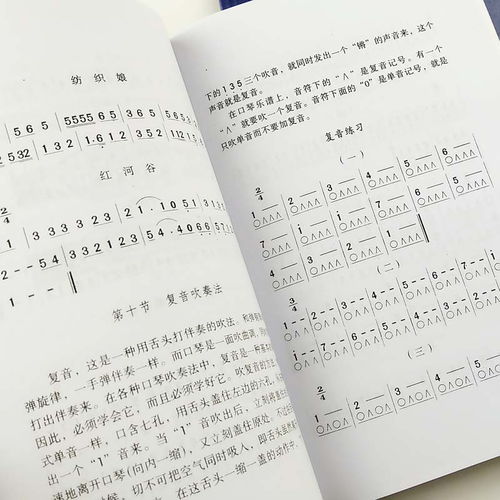 纺织娘
565 | 5555 65 |
5 532 | 1 3 2 | 1·6 1 2 |
红河谷
2/4
1 3 3 3 3 2 3 | 2 1 · 1 0 5 1
2 - - 5 4 | 3 3 2 1 2 3 | 5 4 · 4 0 6 6
1 - -
第十节 复音吹奏法
复音,这是一种用舌头打伴奏的吹法,
弹旋律,一手弹伴奏一样。而口琴是一面吹曲调,
打出伴奏来。在各种口琴吹奏法中,复音是一种
因此,必须学会它,而且必须学好它。吹复音的
式单音一样,口含七孔,用舌头盖住左边的六孔,
出一个“1”音来。当“1”音吹出后,立刻将
地离开口琴(向内一缩),又立刻盖住原处,
候,切不可把空气同时吸入,即舌
在这舌头一缩一盖的动作中,
下的135三个吹音,就同时发出一个“锵”的声音来,这个
声音就是复音。
在口琴乐谱上,音符下的“∧”是复音记号。有一个
“∧”就要吹一个复音。音符下面的“0”是单音记号,就是
只吹单音而不要加复音。
复音练习
(一)
2/4
1 — | 2 — | 3 — | 4 — | 5 — | 6 —
○∧∧∧ ○∧∧∧ ○∧∧∧ ○∧∧∧ ○∧∧∧ ○∧∧∧
7 — | i — | i — | 7 — | 6 — | 5 —
○∧∧∧ ○∧∧∧ ○∧∧∧ ○∧∧∧ ○∧∧∧ ○∧∧∧
4 — | 3 — | 2 — | 1 —
○∧∧∧ ○∧∧∧ ○∧∧∧ ○∧∧∧
(二)
3/4
1 - - | 2 - - | 3 - - | 4 - - | 5 - - | 6 - -
○∧∧ ○∧∧ ○∧∧ ○∧∧ ○∧∧ ○∧∧
i - - | 7 - - | 6 - - | 5 - - | 4 - - | 3 - -
○∧∧ ○∧∧ ○∧∧ ○∧∧ ○∧∧ ○∧∧
(三)
2/4
1 — | 2 — | 3 — | 4 — | 5 —
○∧○∧ ○∧○∧ ○∧○∧ ○∧○∧